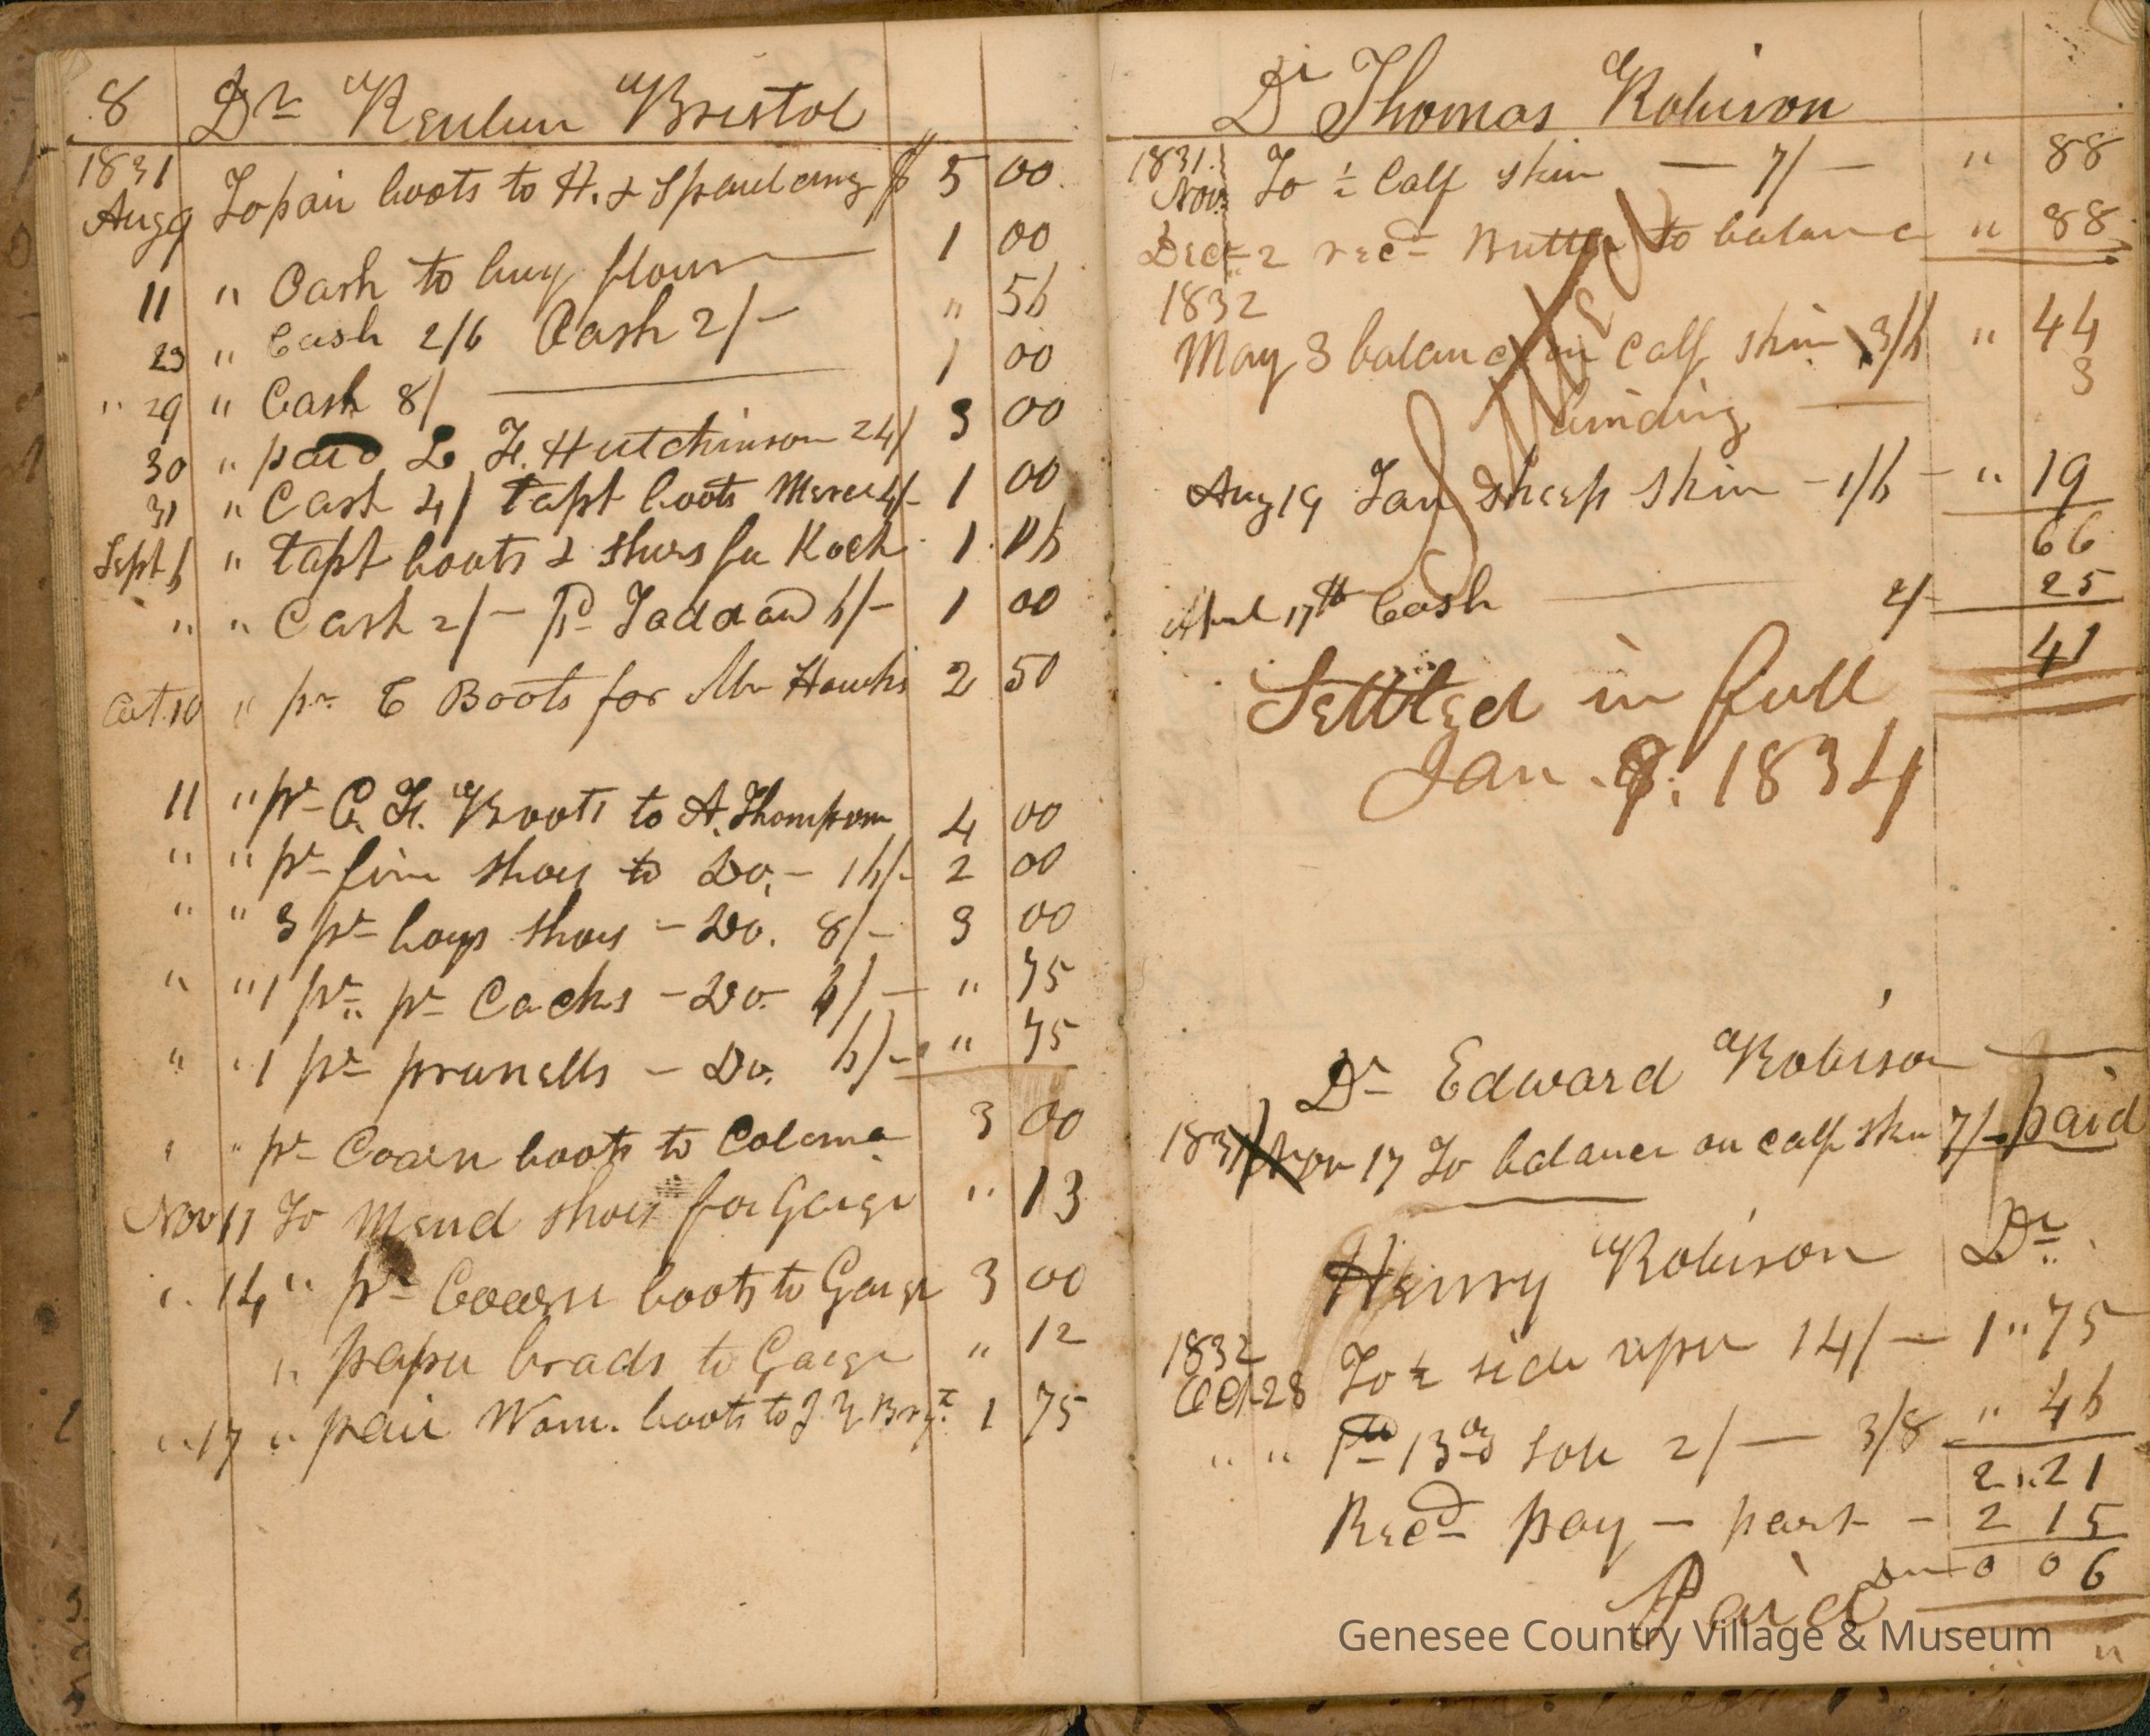 8 Dr Reuben Bristol
1831
Aug 9 To pair boots to H. & Spaulding $ 5 00
11 " Cash to buy flour 1 00
23 " Cash 2/6 Cash 2/- " 56
" 29 " Cash 8/ 1 00
30 " paid L H. Hutchinson 24/ 3 00
31 " Cash 4/ tapt boots 4/- 1 00
Sept 6 " tapt boots & shoes for Koch 1 16
" " Cash 2/- Pd 6/- 1 00
Oct 10 " pr C Boots for Mr Hawks 2 50
11 " pr C. H. Boots to A. Thompson 4 00
" " pr fine shoes to Do. - 16/- 2 00
" " 3 pr boys shoes - Do. 8/- 3 00
" " 1 pr pr Cacks - Do. 6/- " 75
" " 1 pr prunells - Do. 6/- " 75
" " pr Coars boots to 3 00
Nov 11 To Mend shoes for Gaige " 13
" 14 " pr Coars boots to Gaige 3 00
" papu brads to Gaige " 12
" 17 " pair Wom. boots to J 1 75
Dr Thomas Robison
1831
Nov To ½ Calf skin - 7/- " 88
Dec 2 recd Butter to balance " 88
1832
May 3 balance on calf skin 3/6 " 44
binding 3
Aug 19 Tan Sheep skin - 1/6 - " 19
66
April 17th Cash 2/- 25
41
Settled
Settled in full
Jan. 8. 1834
Dr Edward Robison
1831 Nov 17 To balance on calf skin 7/- paid
Henry Robison Dr
1832
Oct 28 To ½ side uper 14/- 1 " 75
" " sole 2/- 3/8 " 46
2 " 21
Recd pay - part - 2 15
Due 0 06
Paid
Genesee Country Village & Museum